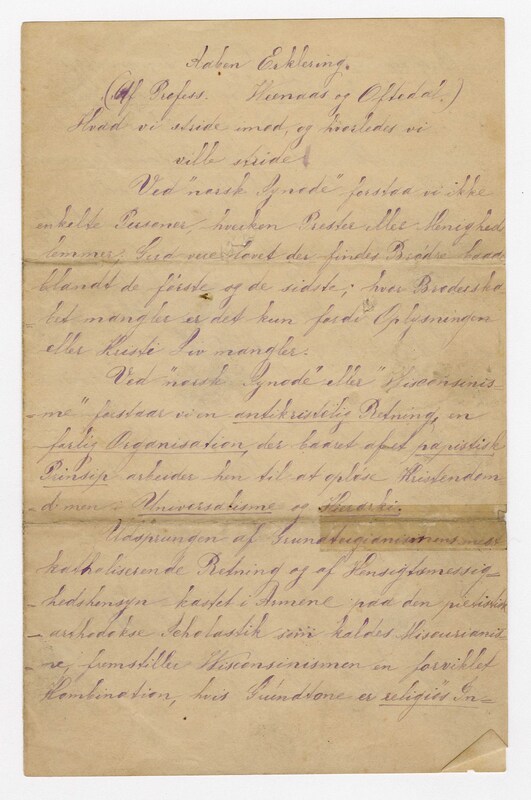 Aaben Erklering.
(Af Profess. Weenaas og Oftedal.)
Hvad vi stride imod, og hvorledes vi
ville stride
Ved "norsk Synode" forstaa vi ikke
enkelte Personer, hverken Prester eller Menigheds
lemmer; Gud være lovet der findes Brødre baade
blandt de förste og de sidste; hvor Broderska
bet mangler er det kun fordi Oplysningen
eller Kristi Liv mangler.
Ved "norsk Synode" eller "Wisconsinis-
me" forstaar vi en antikristelig Retning, en
farlig Organisation, der baaret af et papistisk
Prinsip arbeider hen til at oplöse Kristendom
dommen i Universalisme og Hierarki.
Udsprungen af Grundtvigianismens mest
katholiserende Retning og af Hensigtsmessig-
hedshensyn kastet i Armene paa den pietistisk
orthodokse Scholastik som kaldes Missourianis
me, fremstiller Wisconsinismen en forviklet
Kombination, hvis Grundtone er religiös In-